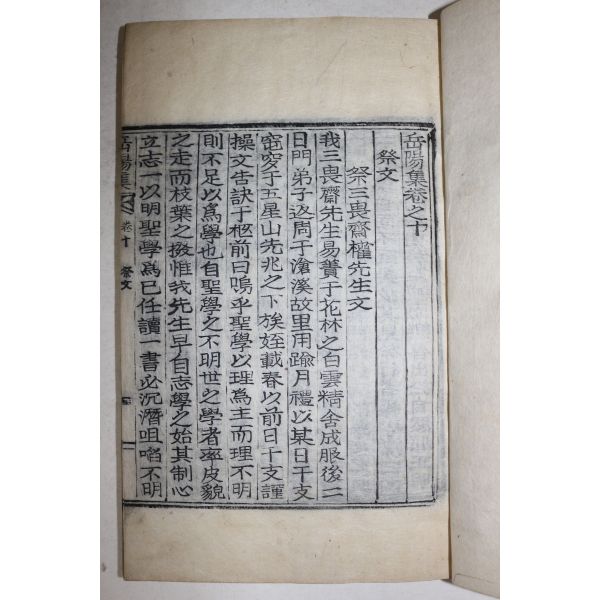 岳陽集卷之十
祭文
祭三畏齋權先生文
我三畏齋先生易簀于花林之白雲精舍成服後二
日門弟子返周于滄溪故里用踰月禮以某日干支
窀穸于五星山先兆之下族姪載春以前日干支謹
操文告訣于柩前曰嗚乎聖學以理爲主而理不明
則不足以爲學也自聖學之不明世之學者率皮貌
之走而枝葉之掇惟我先生早自志學之始其制心
立志一以明聖學爲已任讀一書必沉潛咀啗不明
岳陽集 卷十 祭文